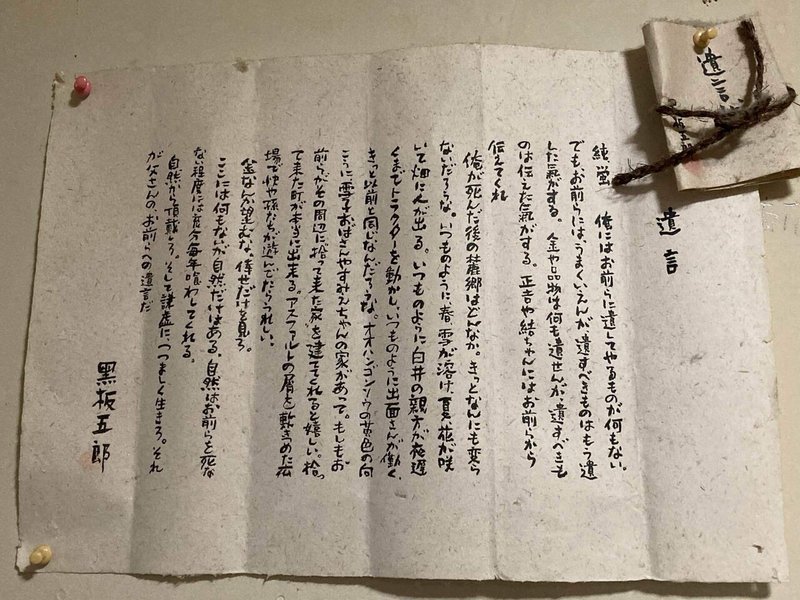 遺言
遺言
純、蛍　俺にはお前らに遺してやるものが何もない。
でもお前らには、うまくいえんが、遺すべきものはもう遺
した氣がする。金や品物は何も遺せんが、遺すべきも
のは伝えた氣がする。正吉や結ちゃんにはお前らから
伝えてくれ
俺が死んだ後の麓郷はどんなか。きっとなんにも変ら
ないだろうな。いつものように、春、雪が溶け、夏、花が咲
いて畑に人が出る。いつものように白井の親方が夜遅
くまでトラクターを動かし、いつものように出面さんが働く、
きっと以前と同じなんだろうな。オオハンゴンソウの黄色の向
こうに雪子おばさんやすみえちゃんの家があって。もしもお
前らがその周辺に“拾って来た家”を建てくれると嬉しい。拾っ
て来た町が本当に出来る。アスファルトの屑を敷きつめた広
場で快や孫たちが遊んでたらうれしい。
金なんか望むな。倖せだけを見ろ。
ここには何もないが自然だけはある。自然はお前らを死な
ない程度には充分毎年喰わしてくれる。
自然から頂戴しろ。そして謙虚に、つつましく生きろ。それ
が父さんの、お前らへの遺言だ
黒板五郎